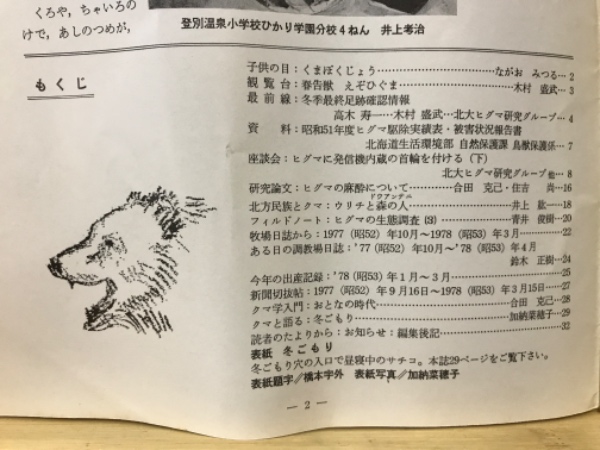 くろや，ちゃいろの
けで，あしのつめが，
登別温泉小学校ひかり学園分校4ねん 井上考治
もくじ
子供の目：くまぼくじょう……ながお みつる…2
観覧台：春告獣 えぞひぐま……木村 盛武…3
最前線：冬季最終足跡確認情報
高木 寿……木村 盛武…北大ヒグマ研究グループ…4
資料：昭和51年度ヒグマ駆除実績表・被害状況報告書
北海道生活環境部 自然保護課 鳥獣保護係…7
座談会：ヒグマに発信機内蔵の首輪を付ける（下）
北大ヒグマ研究グループ他…8
研究論文：ヒグマの麻酔について……合田 克己・住吉 尚…16
北方民族とクマ：ウリチと森の人……井上 紘一…18
フィルドノート：ヒグマの生態調査（3）……青井 俊樹…20
牧場日誌から：1977（昭52）年10月～1978（昭53）年3月……22
ある日の調教場日誌：'77（昭52）年10月～'78（昭53）年4月
鈴木 正樹…24
今年の出産記録：'78（昭53）年1月～3月……25
新聞切抜帖：1977（昭52）年9月16日～1978（昭53）年3月15日……27
クマ学入門：おとなの時代……合田 克己…28
クマと語る：冬ごもり……加納菜穂子…29
読者のたよりから：お知らせ：編集後記……32
表紙 冬ごもり
冬ごもり穴の入口で昼寝中のサチコ。本誌29ページをご覧下さい。
表紙題字／橋本宇外 表紙写真／加納菜穂子
— 2 —